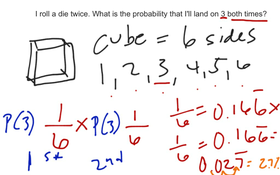 I roll a die twice. What is the probability that I'll land on 3 both times?
cube = 6 sides
1, 2, 3, 4, 5, 6
P(3) 1/6 x P(3) 1/6
1st 2nd
1/6 = 0.166 x
1/6 = 0.166 =
0.027 = 2.7%